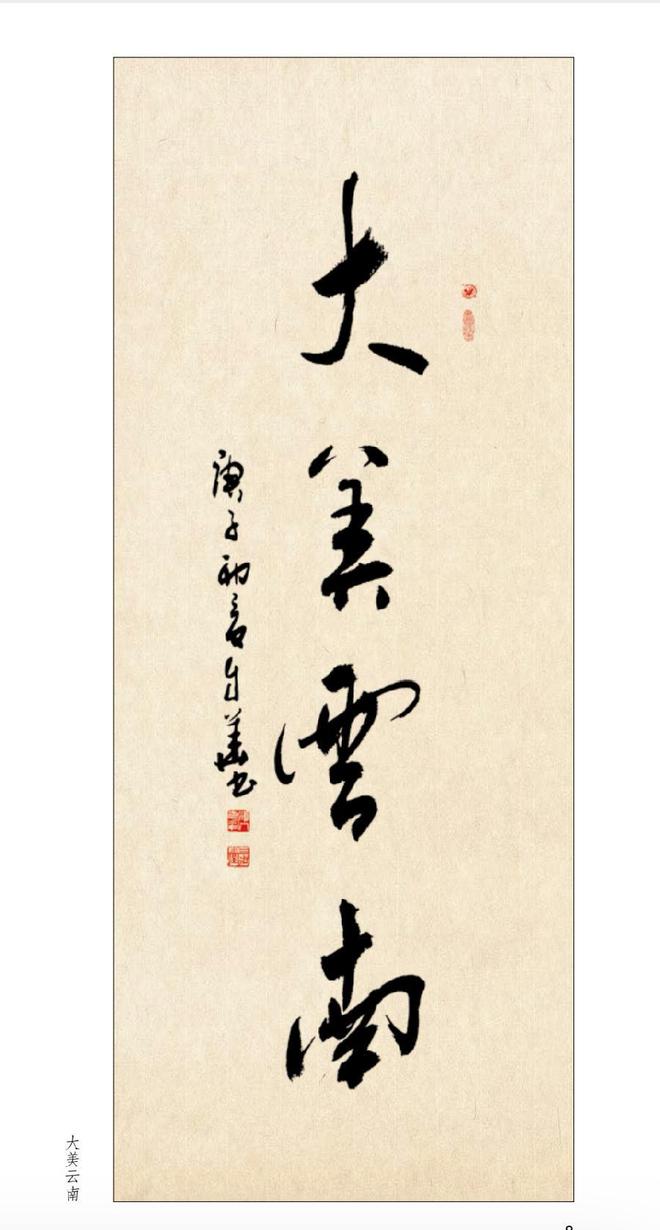 大美雲南
庚子初春自華书
大美云南